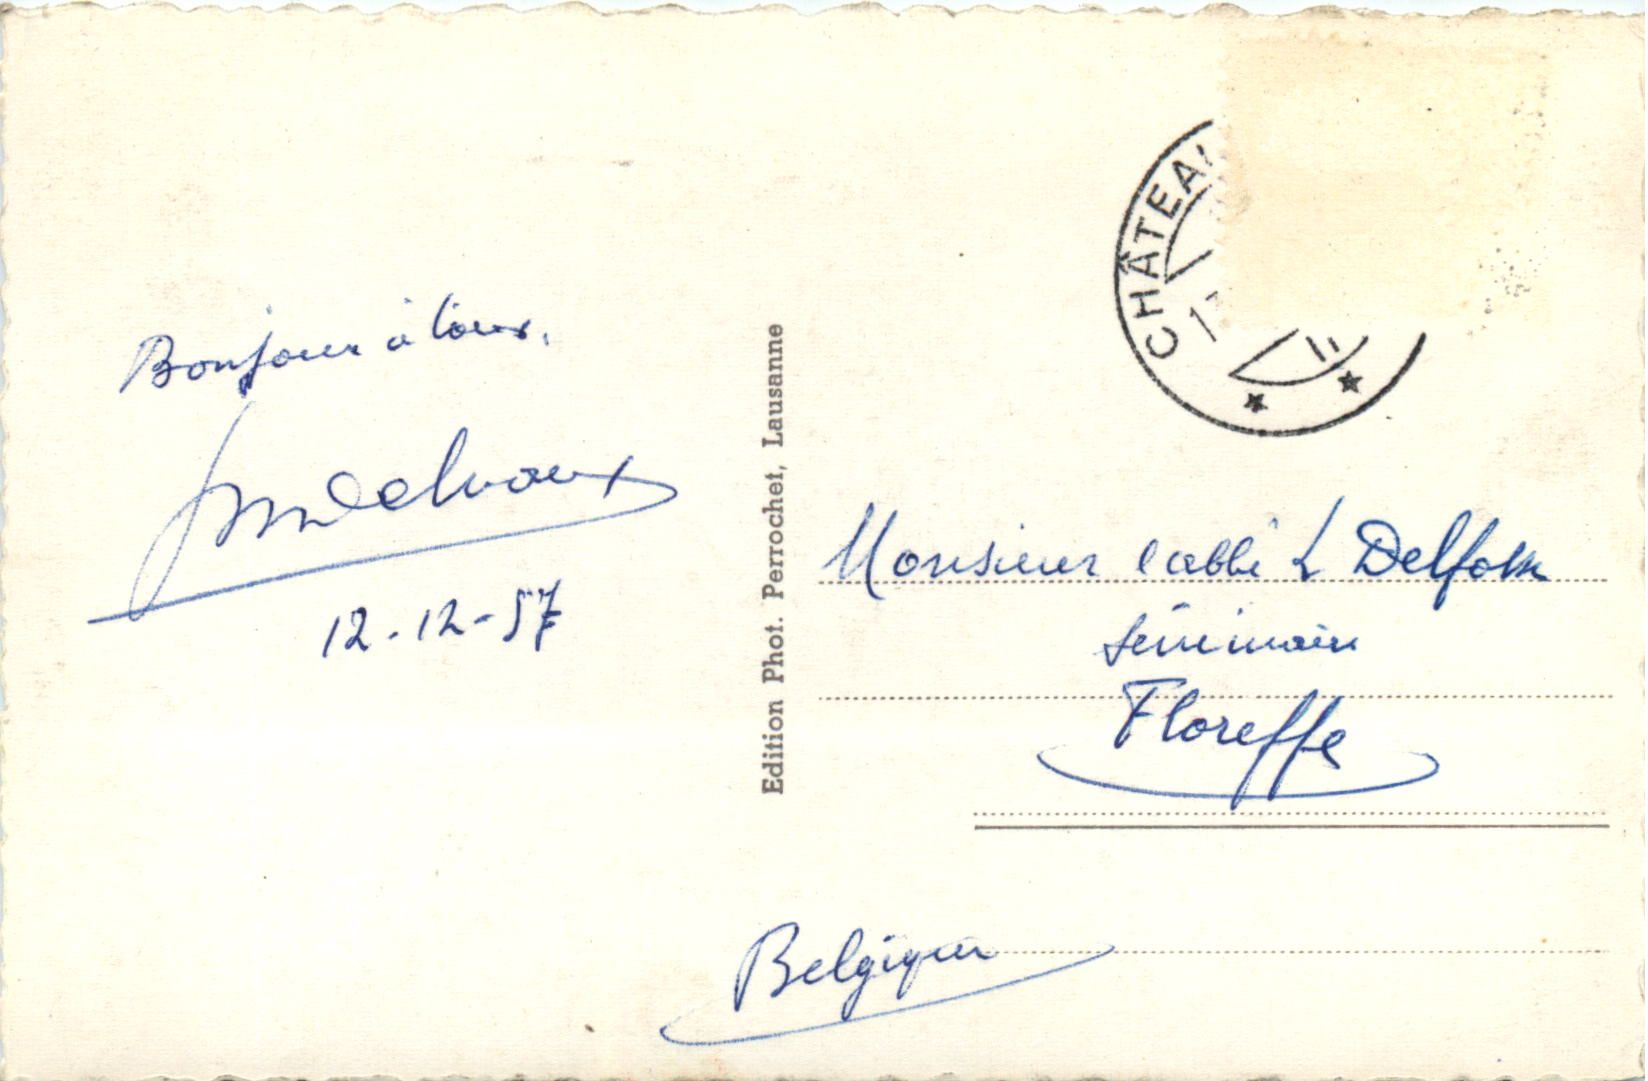 Bonjour à tous.
12-12-57
Edition Phot. Perrochet, Lausanne
CHÂTEA
Monsieur l'abbé L
Séminaire
Floreffe
Belgique